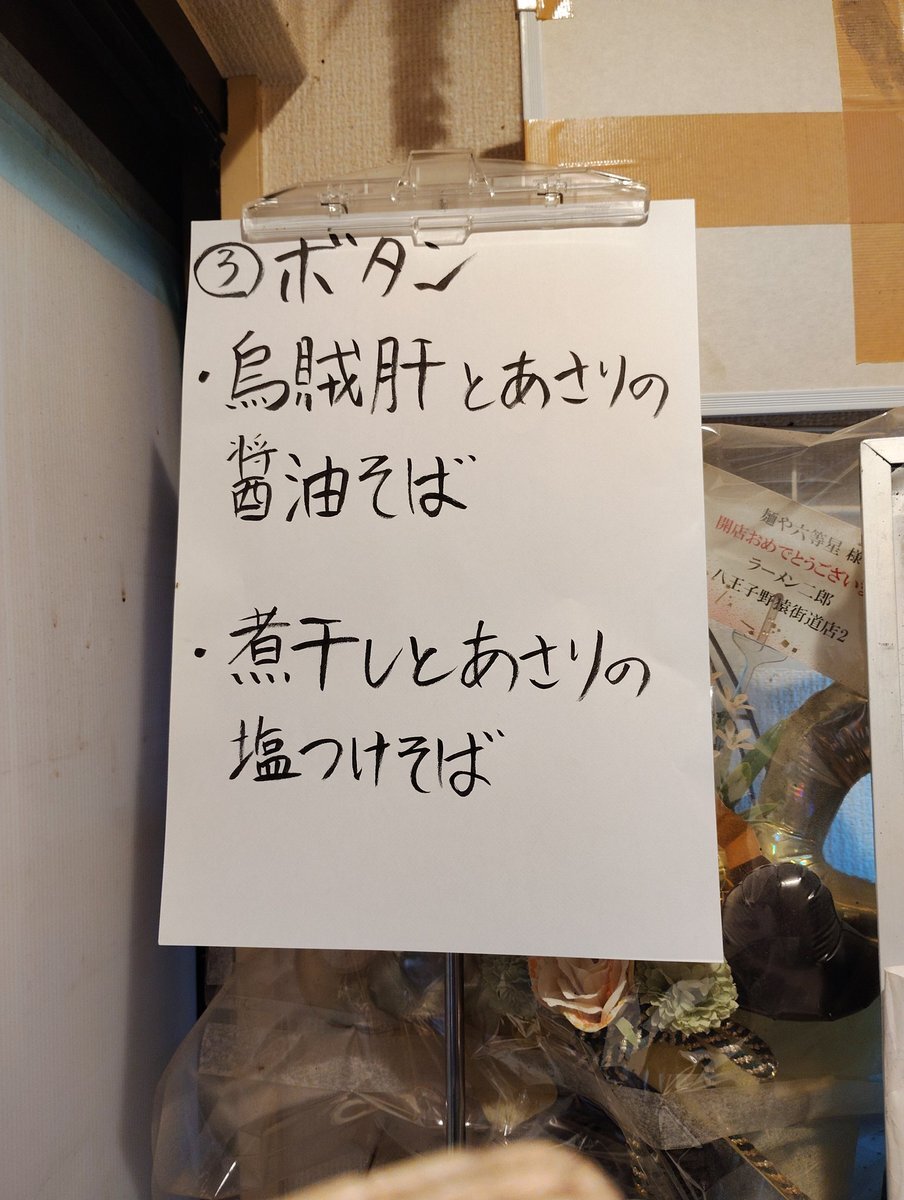 ③ボタン
・烏賊肝とあさりの
醤油そば
・煮干しとあさりの
塩つけそば
麺や六等星 様
開店おめでとうござい
ラーメン二郎
八王子野猿街道店2